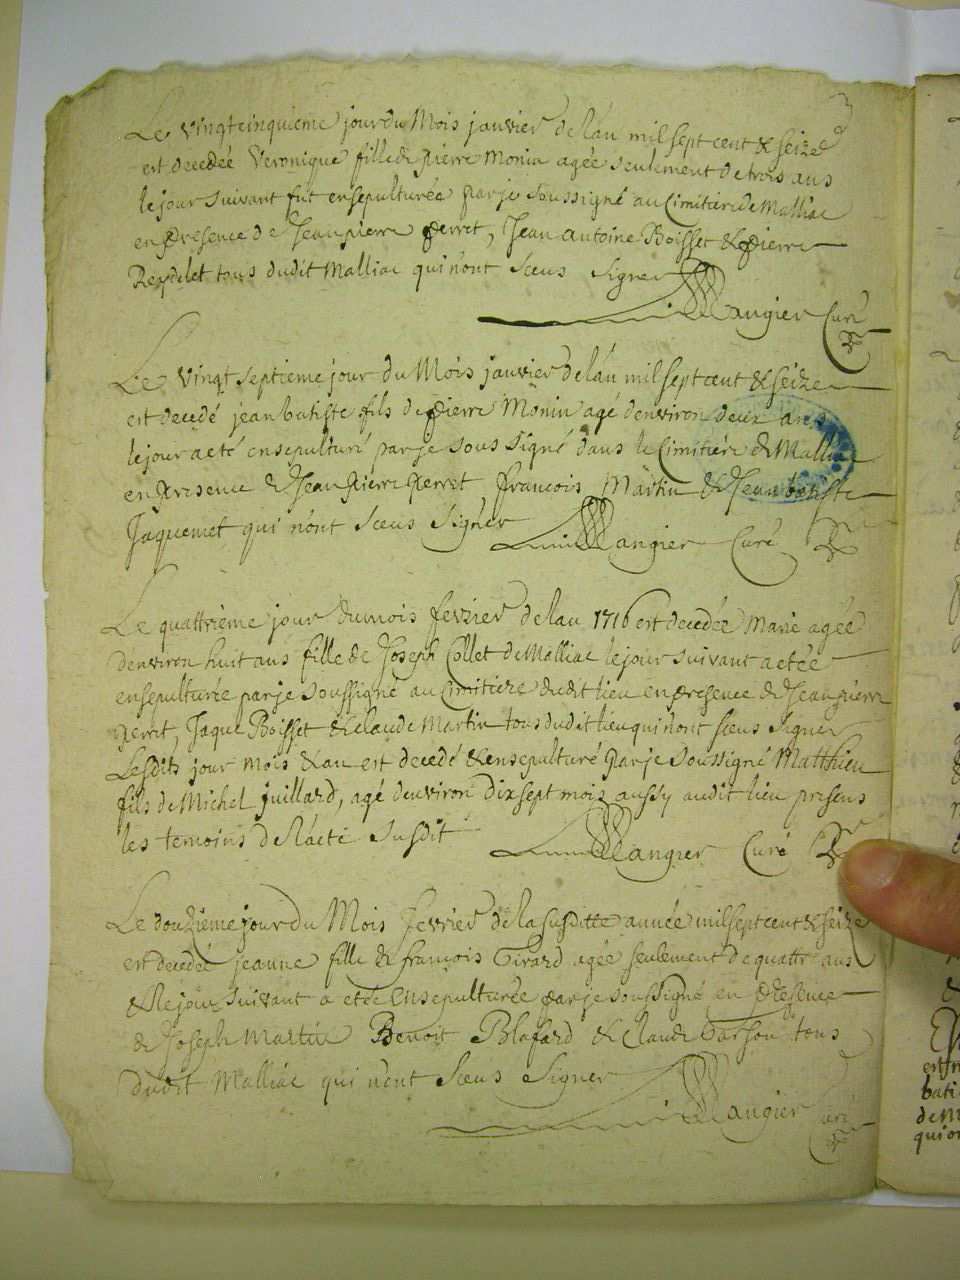 Le vingtcinquieme jour du Mois janvier de lan mil sept cent & seize
est decedée Veronique fille de pierre Monin agée seulement de trois ans
le jour suivant fut ensepulturée par je soussigné au Cimitiere de Malliac
en presence de Jean pierre perret, Jean antoine Boisset & pierre
Reydelet tous dudit Malliac qui n'ont sceus signer
Mangier Curé
Le vingt septieme jour du Mois janvier de lan mil sept cent & seize
est decedé jean batiste fils de pierre Monin agé d'environ deux ans
le jour a eté ensepulturé par je sous signé dans le Cimitiere de Malliac
en presence de Jean pierre perret, francois Martin & Jean batiste
Jaquemet qui n'ont sceus signer Mangier Curé
Le quattrième jour du mois fevrier de lan 1716 est decedée Marie agée
d'environ huit ans fille de Joseph Collet de Malliac le jour suivant a etée
ensepulturée par je soussigné au Cimitiere dudit lieu en presence de Jean pierre
perret, Jaque Boisset & Claude Martin tous dudit lieu qui n'ont sceus signer
Lesdits jour mois & an est decedé & ensepulturé par je soussigné Matthieu
fils de Michel juillard, agé d'environ dix sept mois aussy audit lieu presens
les temoins de l'acte susdit Mangier Curé
Le douzieme jour du Mois fevrier de la susditte année mil sept cent & seize
est decedée jeanne fille de francois Girard agée seulement de quattr ans
& le jour suivant a etée Ensepulturée par je soussigné en presence
de Joseph Martin Benoit Blafard & Claude tous
dudit Malliac qui n'ont sceus signer
Mangier Curé